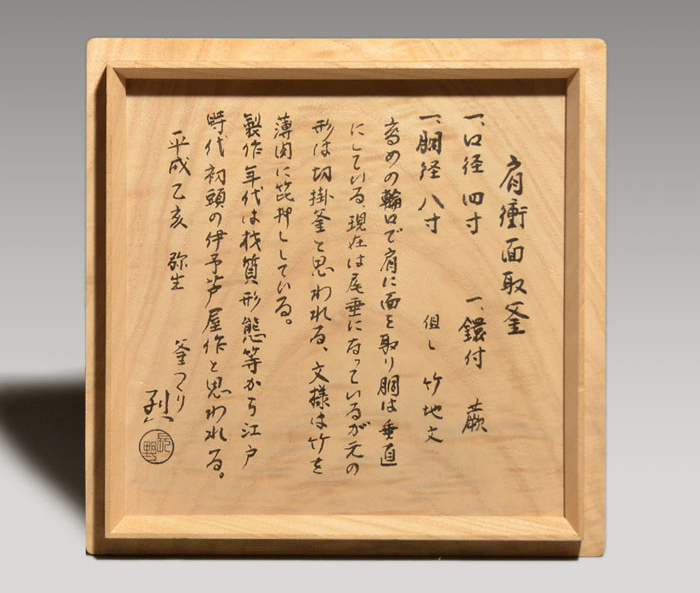 肩衝面取釜
一、口径 四寸 一、鐶付 蕨
一、胴径 八寸 但し 竹地文
高めの輪口で肩に面を取り胴は垂直
にしている、現在は尾垂になっているが元の
形は切掛釜と思われる、文様は竹を
薄肉に箆押ししている。
製作年代は材質形態等から江戸
時代初頭の伊予芦屋作と思われる。
平成乙亥 弥生 釜つくり